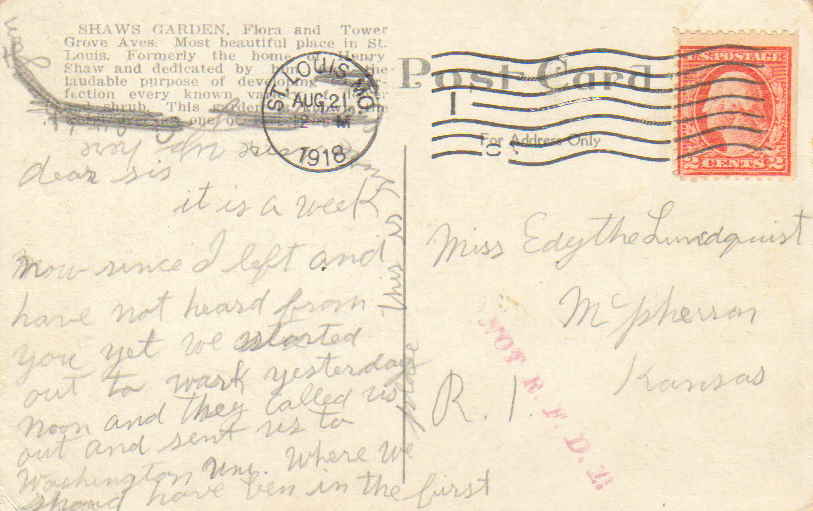 SHAWS GARDEN, Flora and Tower
Grove Aves. Most beautiful place in St.
Louis. Formerly the home of Henry
Shaw and dedicated by him
laudable purpose of
fection every known
and shrub. This
one of
Post Card
For Address Only
ST. LOUIS, MO.
AUG 21
12 M
1918
1
U.S. POSTAGE
2 CENTS 2
dear sis
it is a week
now since I left and
have not heard from
you yet we started
out to work yesterday
noon and they called us
out and sent us to
Washington Uni. Where we
should have ben in the first
place
this
Miss Edythe Lundquist
McPherson
Kansas
R. 1.
NOT R. F. D. 1